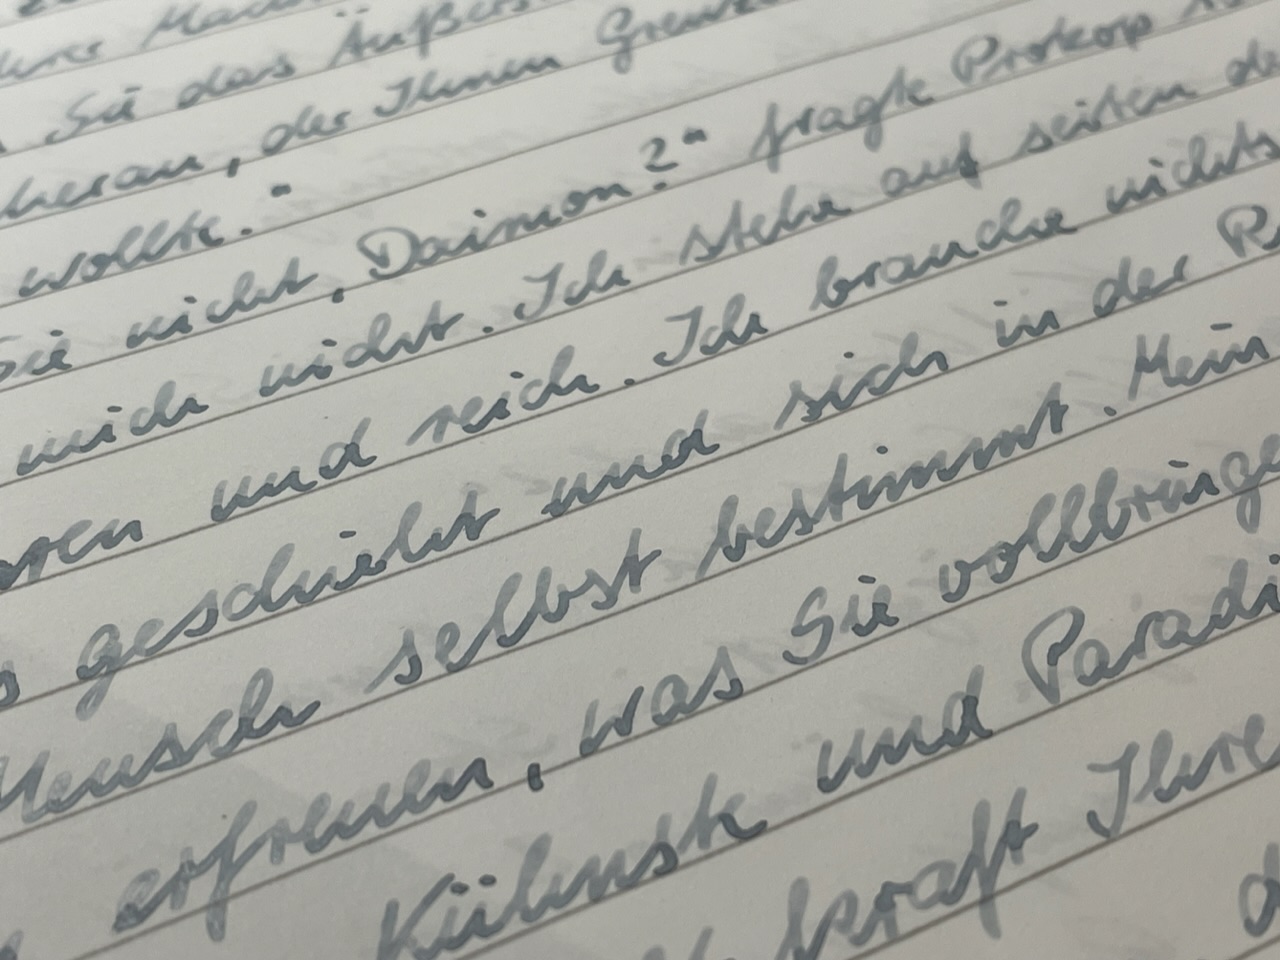 Sie das Äußers
heran, der Ihnen Grenz
wollte."
Sie nicht, Daimon?" fragte Prokop
mich nicht. Ich stehe auf seiten de
und reich. Ich brauche nichts
geschieht und sich in der R
Mensch selbst bestimmt. Mein
erfreuen, was Sie vollbringe
Kühnste und Paradi
kraft Ihre